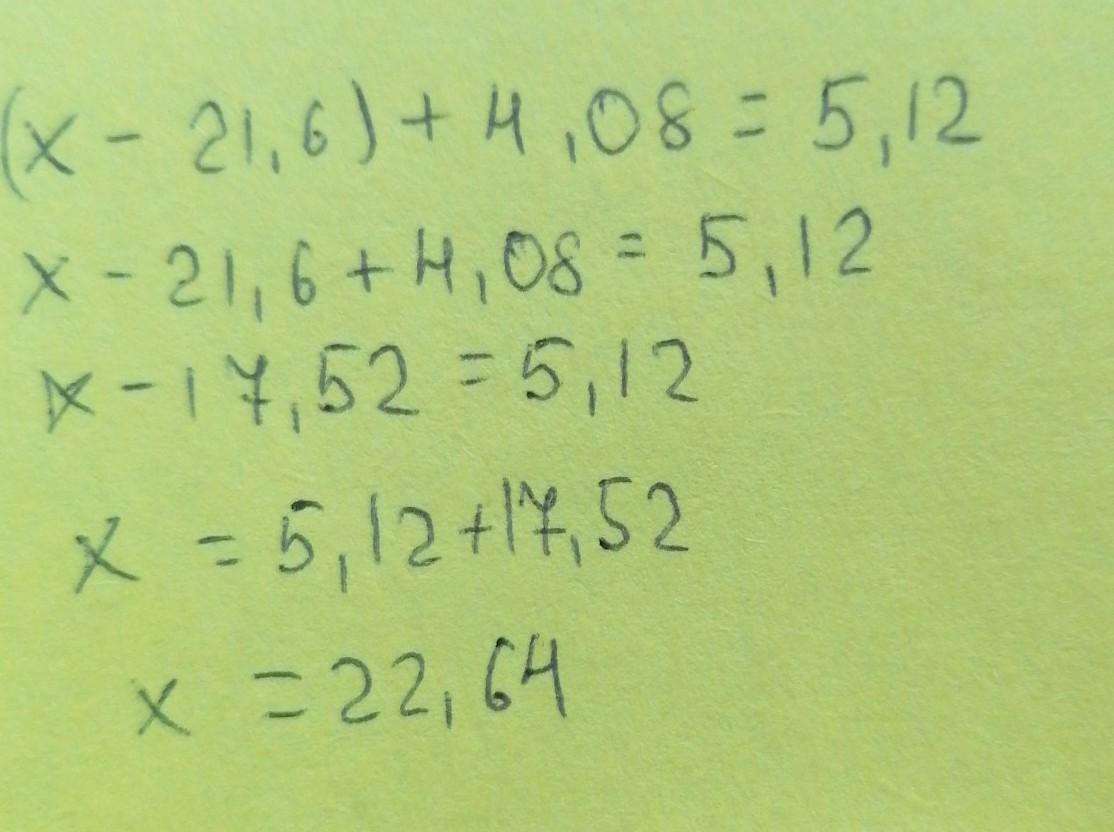 (x - 21,6) + 4,08 = 5,12
x - 21,6 + 4,08 = 5,12
x - 17,52 = 5,12
x = 5,12 + 17,52
x = 22,64